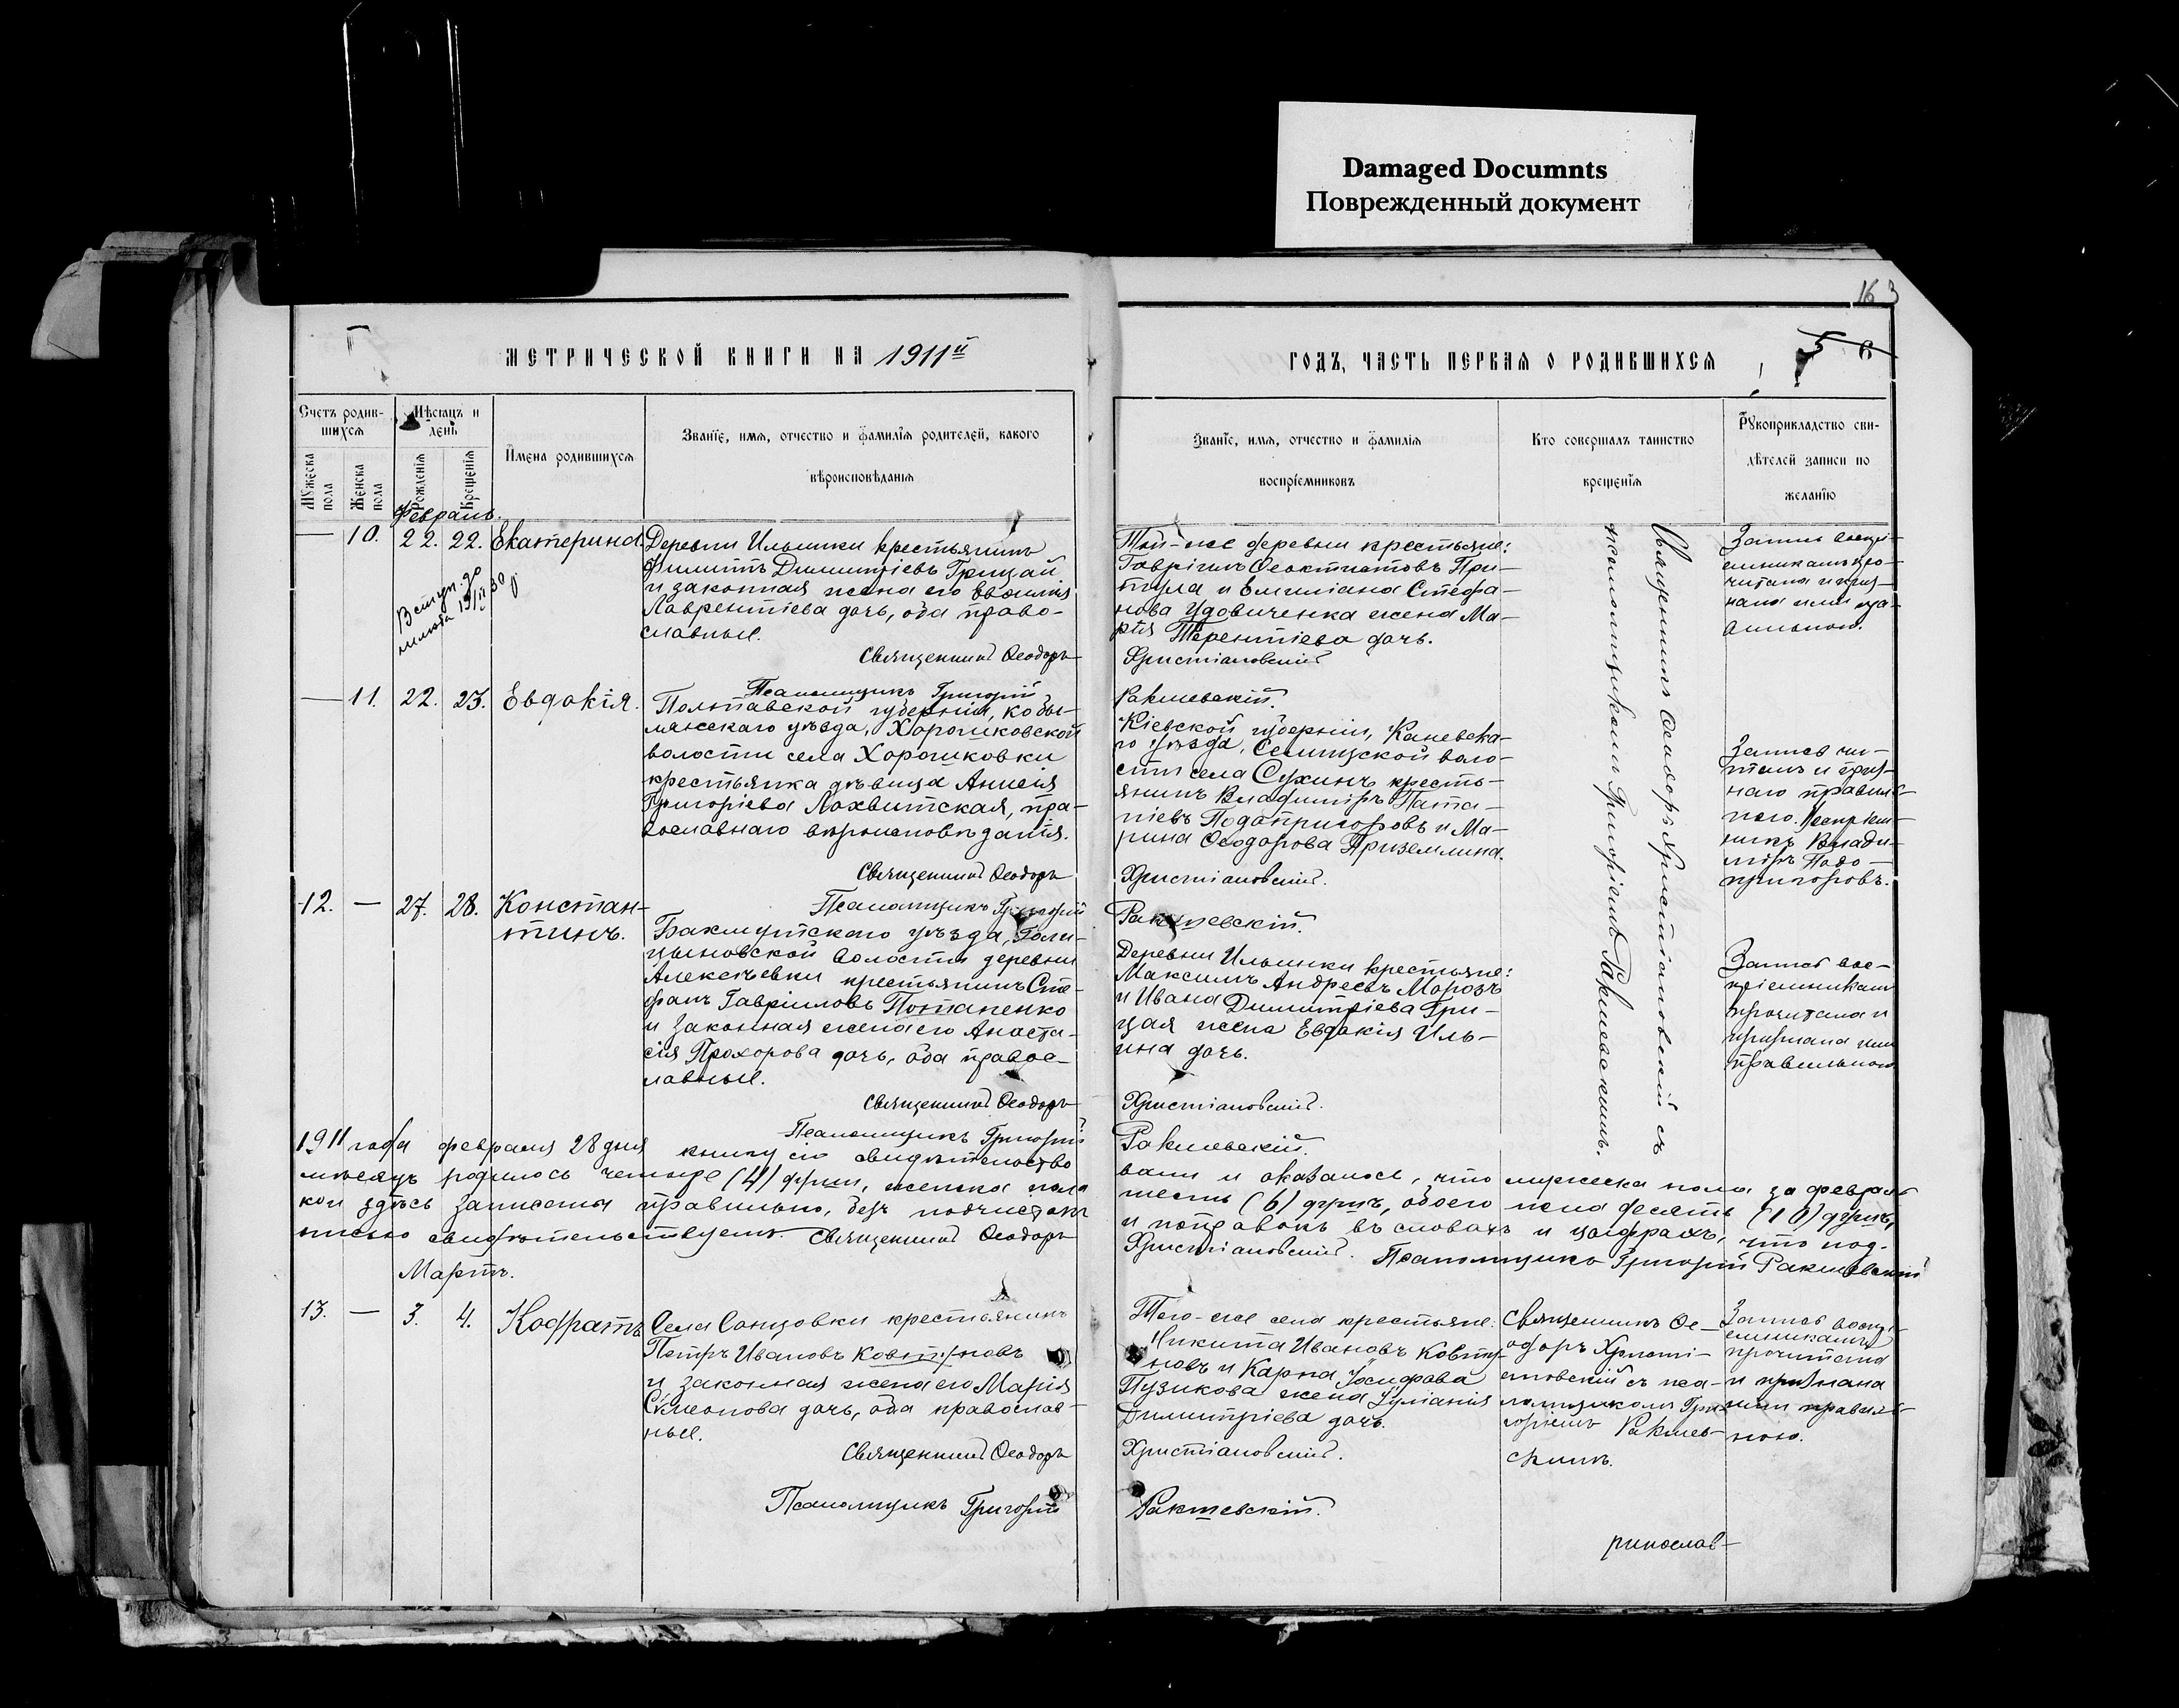 Damaged Documnts
Поврежденный документ
16
МЕТРИЧЕСКОЙ КНИГИ НА 1911й
ГОДЪ, ЧАСТЬ ПЕРВАЯ О РОДИВШИХСЯ
5
Счетъ родив-
шихся
Мужеска пола
Женска пола
Мѣсяцъ и
день
Рожденія
Крещенія
Имена родившихся
Званіе, имя, отчество и фамилія родителей, какого
вѣроисповѣданія
Званіе, имя, отчество и фамилія
воспріемниковъ
Кто совершалъ таинство
крещенія
Рукоприкладство сви-
дѣтелей записи по
желанію
Февраль.
— 10. 22. 22. Екатерина.
Деревни Ильинки крестьянинъ
Филиппъ Димитріевъ Грицай
и законная жена его
Лаврентіева дочь, оба право-
славные.
Священникъ Ѳеодоръ
Псаломщикъ Григорій
Той-же деревни крестьяне:
Гавріилъ Ѳеоктистовъ При-
тула и Емиліана Стефа-
нова Удовиченка жена Ма-
рія Терентіева дочь.
Христіановскій
Ракшевскій.
Священникъ Ѳеодоръ Христіановскій съ
псаломщикомъ Григоріемъ Ракшевскимъ.
Запись воспрі-
емникамъ про-
читана и приз-
нана ими пра-
вильною.
— 11. 22. 23. Евдокія.
Полтавской губерніи, Кобы-
лякскаго уѣзда, Хорошковской
волости села Хорошковки
крестьянка дѣвица Анисія
Григоріева Лохвитская, пра-
вославнаго вѣроисповѣданія.
Священникъ Ѳеодоръ
Псаломщикъ Григорій
Кіевской губерніи, Каневска-
го уѣзда, Селищской воло-
сти села Сухинъ кресть-
янинъ Владиміръ Пота-
піевъ Подопригоровъ и Ма-
рина Ѳеодорова Приземлина.
Христіановскій.
Ракшевскій.
Запись чи-
талъ и приз-
наю правиль-
ною. Воспріем-
никъ Влади-
міръ Подо-
пригоровъ.
12. — 27. 28. Констан-
тинъ.
Бахмутскаго уѣзда, Голи-
цыновской волости деревни
Алексѣевки крестьянинъ Сте-
фанъ Гавріиловъ Потапенко
и законная жена его Анаста-
сія Прохорова дочь, оба правос-
лавные.
Священникъ Ѳеодоръ
Псаломщикъ Григорій
Деревни Ильинки крестьяне:
Максимъ Андреевъ Морозъ
и Ивана Димитріева Гри-
цая жена Евдокія Иль-
ина дочь.
Христіановскій.
Ракшевскій.
Запись вос-
пріемникамъ
прочитана и
признана ими
правильною
1911 года февраля 28 дня книгу сію свидѣтельство
вали и оказалось, что мужеска пола за февраль
мѣсяцъ родилось четыре (4) души, женска пола
шесть (6) душъ, обоего пола десять (10) душъ,
кои здѣсь записаны правильно, безъ подчистокъ
и поправокъ въ словахъ и цифрахъ, что под-
писью свидѣтельствуемъ. Священникъ Ѳеодоръ
Христіановскій. Псаломщикъ Григорій Ракшевскій
Мартъ.
13. — 3. 4. Кодратъ
Села Солнцовки крестьянинъ
Петръ Ивановъ Ковтуновъ
и законная жена его Марія
Симеонова дочь, оба православ-
ные.
Священникъ Ѳеодоръ
Псаломщикъ Григорій
Того-же села крестьяне:
Никита Ивановъ Ковту-
новъ и Карпа Іосифова
Пузикова жена Іуліанія
Димитріева дочь.
Христіановскій.
Ракшевскій.
Священникъ Ѳе-
одоръ Христі-
ановскій съ пса-
ломщикомъ Гри-
горіемъ Ракшев-
скимъ.
Запись воспрі-
емникамъ
прочитана
и признана
ими правиль-
ною.
ринослав-